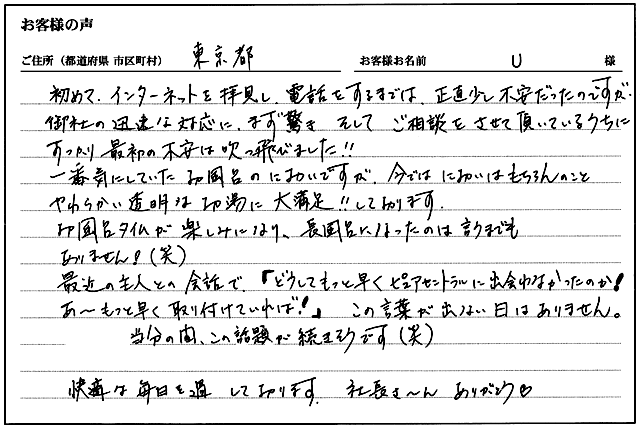 お客様の声
ご住所（都道府県 市区町村） 東京都 お客様お名前 U 様
初めて、インターネットを拝見し、電話をするまでは、正直少し不安だったのですが、
御社の迅速な対応に、まず驚き そして ご相談をさせて頂いているうちに
すっかり最初の不安は吹っ飛びました!!
一番気にしていた お風呂の においですが、今では においはもちろんのこと
やわらかい透明な お湯に 大満足!!しております。
お風呂タイムが 楽しみになり、長風呂になったのは 言うまでも
ありません!（笑）
最近の主人との会話で、「どうしてもっと早くピュアセントラルに出会わなかったのか!
あ〜もっと早く取り付けていれば!」 この言葉が出ない日はありません。
当分の間、この話題が続きそうです（笑）
快適な毎日を過しております。 社長さ〜ん ありがとう♡